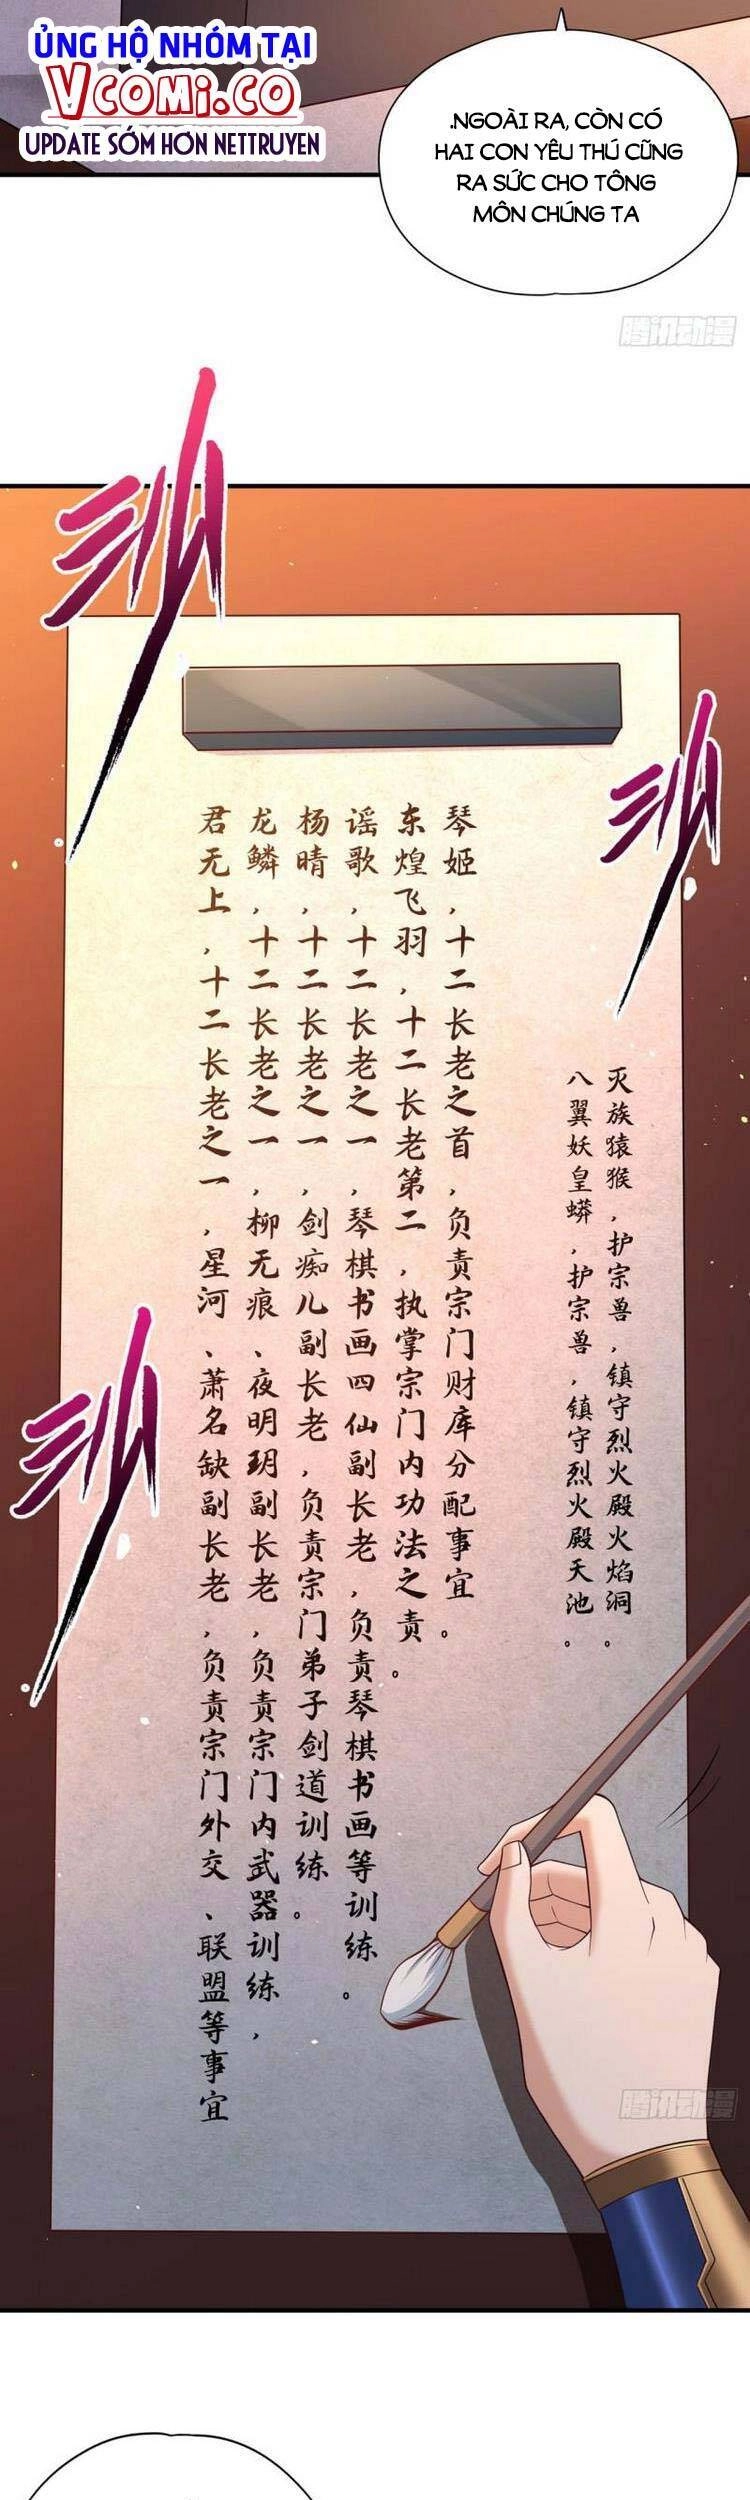 ỦNG HỘ NHÓM TẠI
VCOMI.CO
UPDATE SỚM HƠN NETTRUYEN
.NGOÀI RA, CÒN CÓ
HAI CON YÊU THÚ CŨNG
RA SỨC CHO TÔNG
MÔN CHÚNG TA
腾讯动漫
灭族猿猴，护宗兽，镇守烈火殿火焰洞。
八翼妖皇蟒，护宗兽，镇守烈火殿天池。
琴姬，十二长老之首，负责宗门财库分配事宜。
东煌飞羽，十二长老第二，执掌宗门内功法之责。
谣歌，十二长老之一，琴棋书画四仙副长老，负责琴棋书画等训练。
杨晴，十二长老之一，剑痴儿副长老，负责宗门弟子剑道训练。
龙鳞，十二长老之一，柳无痕、夜明玥副长老，负责宗门内武器训练，
君无上，十二长老之一，星河、萧名缺副长老，负责宗门外交、联盟等事宜
腾讯动漫